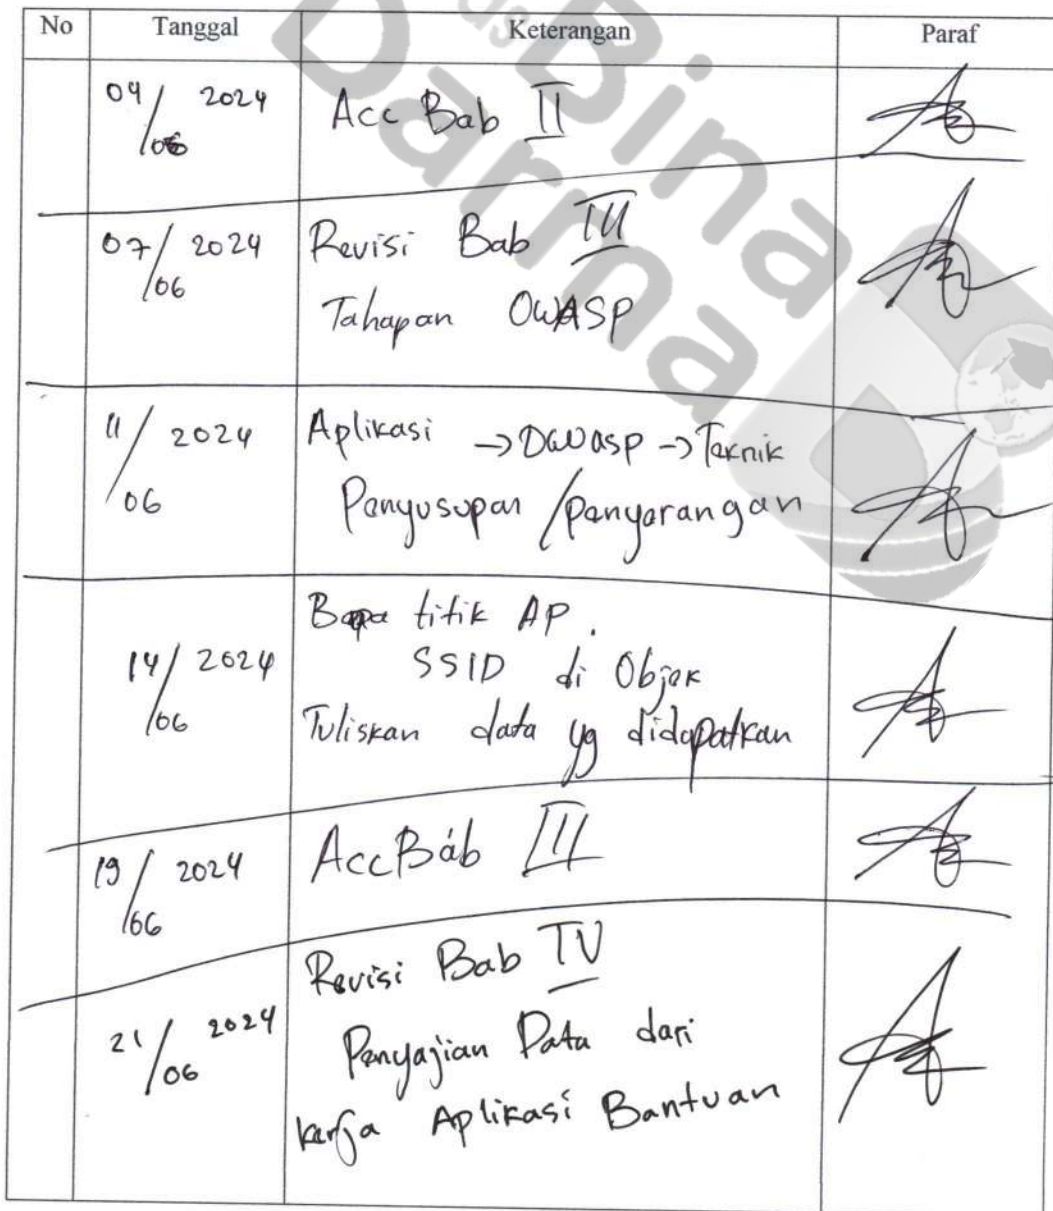 No Tanggal Keterangan Paraf
04/06 2024 Acc Bab II
07/06 2024 Revisi Bab III
Tahapan OWASP
11/06 2024 Aplikasi → OWASP → Teknik
Penyusupan / penyerangan
Bapa titik AP.
14/06 2024 SSID di Objek
Tuliskan data yg didapatkan
19/06 2024 Acc Bab III
Revisi Bab IV
21/06 2024 Penyajian Data dari
kerja Aplikasi Bantuan
Bina
Darma